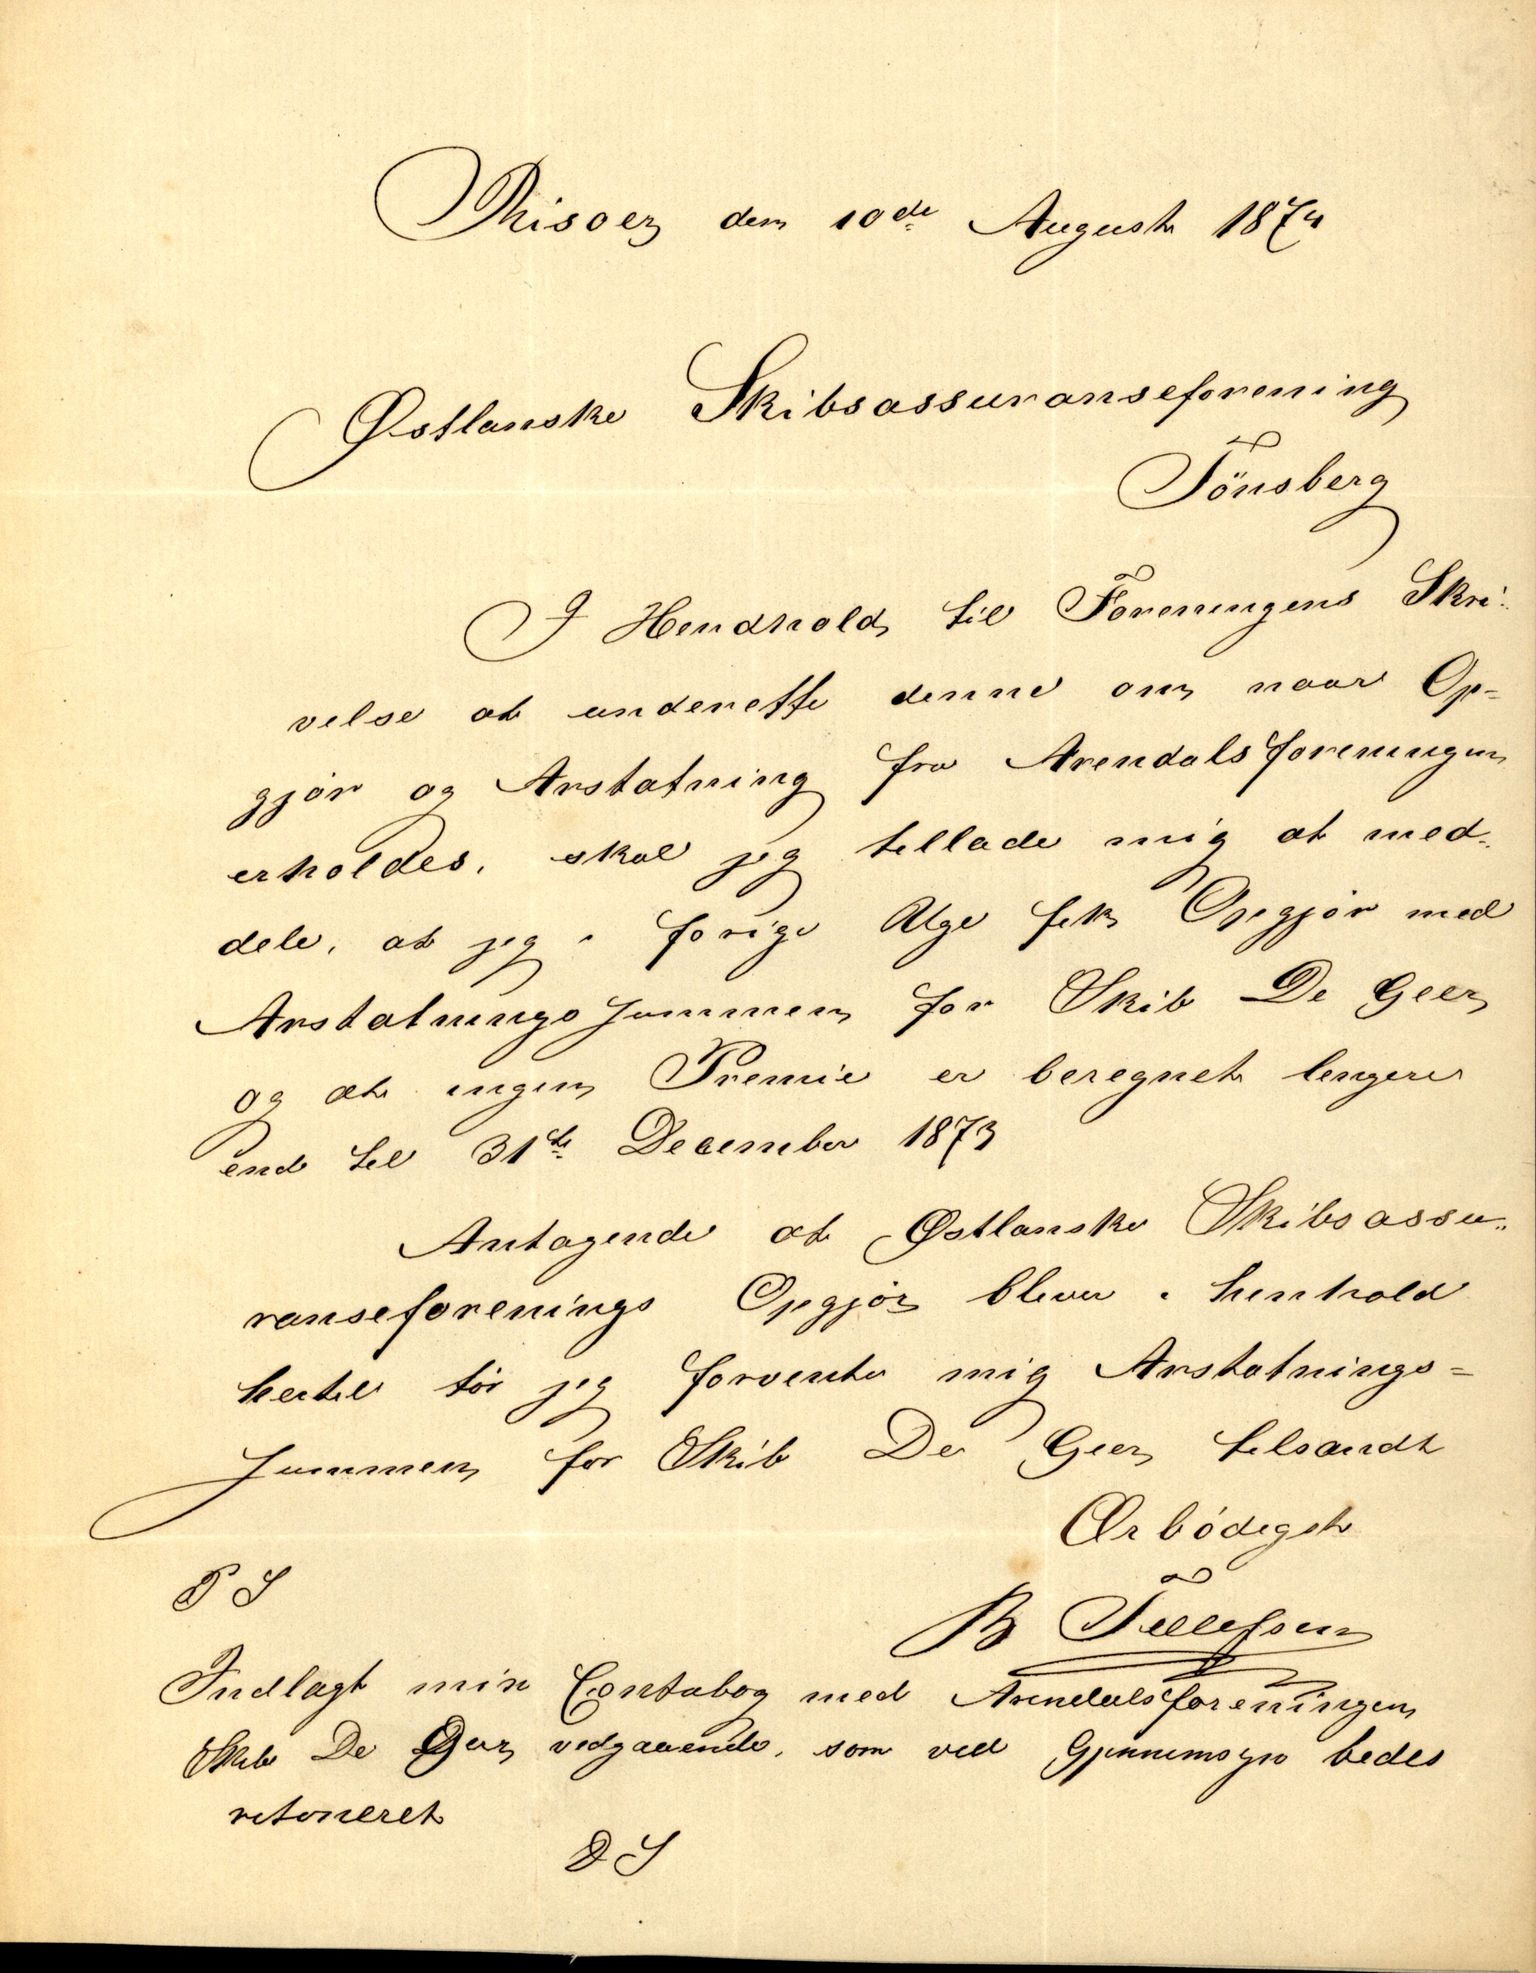 Risoer den 10de August 1874
Østlanske Skibsassuranseforening
Tönsberg
I Hendhold til Foreningens Skri-
velse at underette denne om naar Op-
gjør og Arstatning fra Arendalsforeningen
erholdes, skal jeg tillade mig at med-
dele, at jeg i forige Uge fik Opgjør med
Arstatningssummen for Skib De Geer
og at ingen Premie er beregnet lengere
end til 31te December 1873
Antagende at Østlanske Skibsassu-
ranseforenings Opgjør bliver i henhold
hertil tör jeg forvente mig Arstatnings-
summen for Skib De Geer tilsandt
Ærbödigst
B Tellefsen
P S
Indlagt min Contabog med Arendalsforeningen
Skib De Geer vedgaaende, som ved Gjennemsyn bedes
retoneret
D S